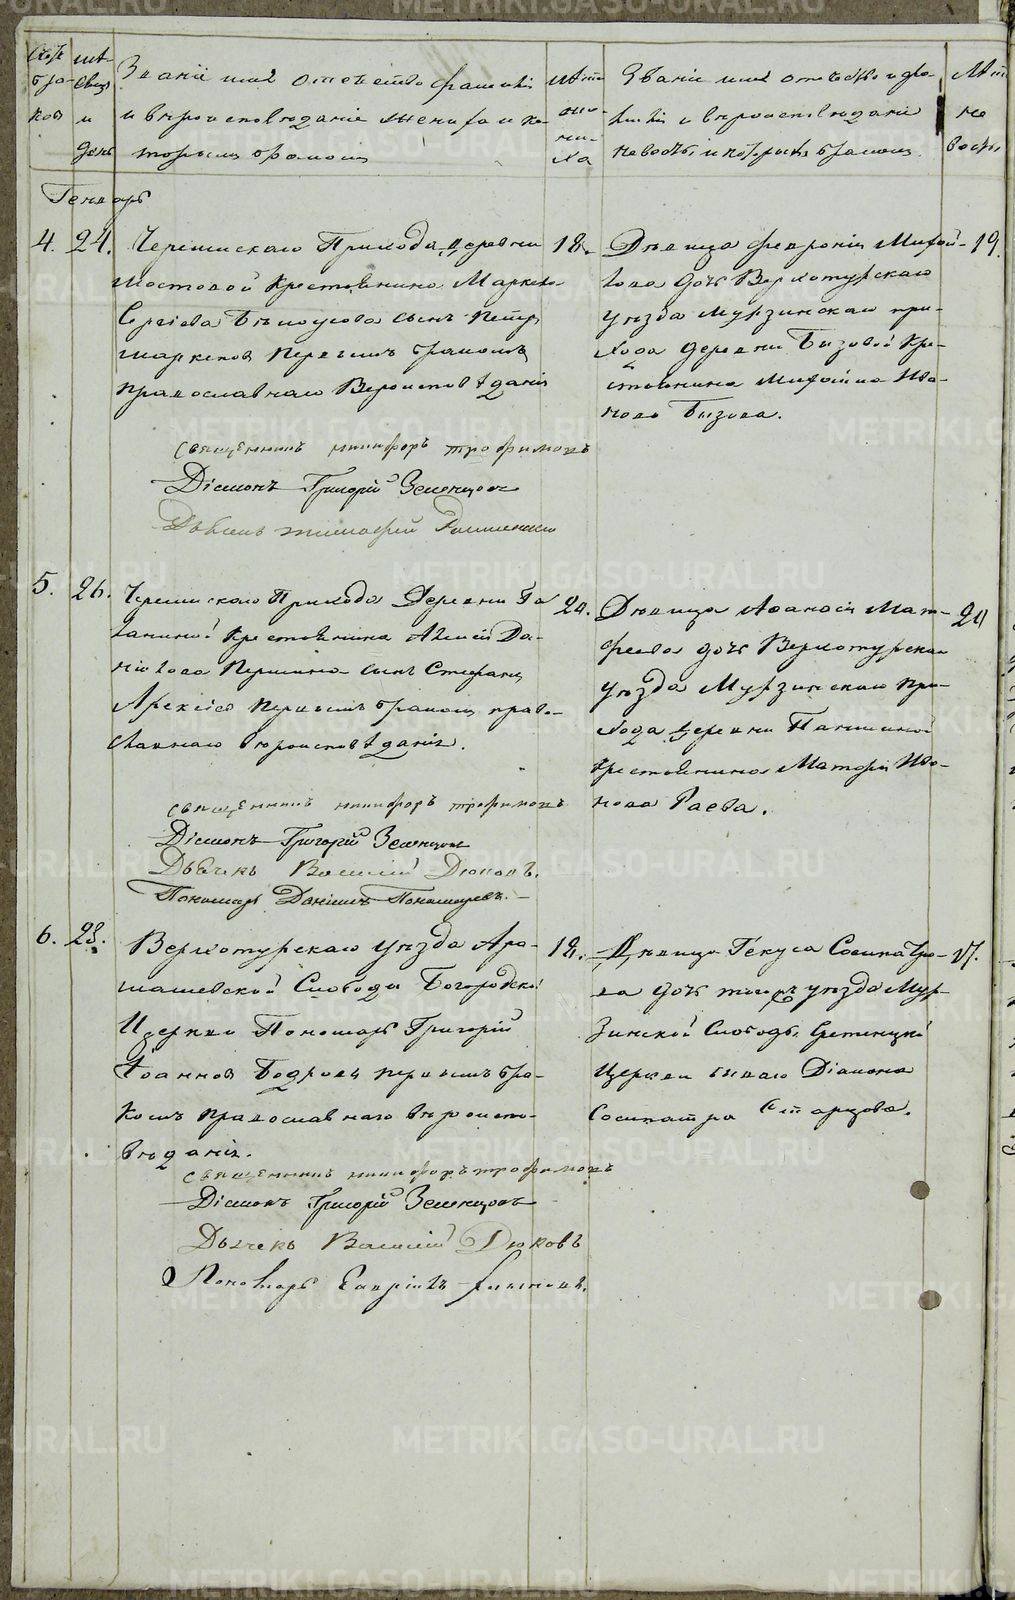 Счетъ бра-ковъ
мѣ-сяцъ и день
Званіе имя отечество фамилія
и вѣроисповѣданіе жениха и ко-
торымъ бракомъ
Лѣта
жени-
ха
Званіе имя отечество и фа-
милія и вѣроисповѣданіе
невѣсты, и которымъ бракомъ.
Лѣта
не
вѣсты
Генварь
4. 24. Черемискаго Прихода деревни 18.
Мостовой крестьянина Маркела
Сергіева Бѣлоусова сынъ Петръ
Маркеловъ первымъ бракомъ
православнаго Вероисповѣданія
Дѣвица Февронія Мифой- 19.
лова дочь Верхотурскаго
уѣзда Мурзинскаго при-
хода деревни Бызовой Кре-
стьянина Ива-
нова Бызова.
священникъ никифоръ трофимовъ
Діаконъ Григорій Зеленцовъ
5. 26. Черемискаго Прихода Деревни Га
крестьянина Алексія Да-
нилова Першина сынъ Стефанъ
Алексіев первымъ бракомъ право-
славнаго вѣроисповѣданія.
20. Дѣвица Аѳанасія Мат- 20
феева дочь Верхотурскаго
уѣзда Мурзинскаго при-
хода деревни
крестьянина Матфія Ива-
нова Раева.
священникъ никифоръ трофимовъ
Діаконъ Григорій Зеленцовъ
Дьячекъ Василій Дюковъ.
Пономарь Даніилъ Пономаревъ.
6. 28. Верхотурскаго уѣзда Ара-
машевской Слободы Богородской
Церкви Пономарь Григорій
Іоанновъ Бодровъ первымъ бра-
комъ православнаго вѣроиспо-
вѣданія.
18. Дѣвица Гекуса Сосипатро- 17.
ва дочь тогожъ уѣзда Мур-
зинской Слободы, Сретенской
Церкви Діакона
Сосипатра Старцова.
священникъ никифоръ трофимовъ
Діаконъ Григорій Зеленцовъ
Дьячекъ Василій Дюковъ
Пономарь Гавріилъ
METRIKI.GASO-URAL.RU